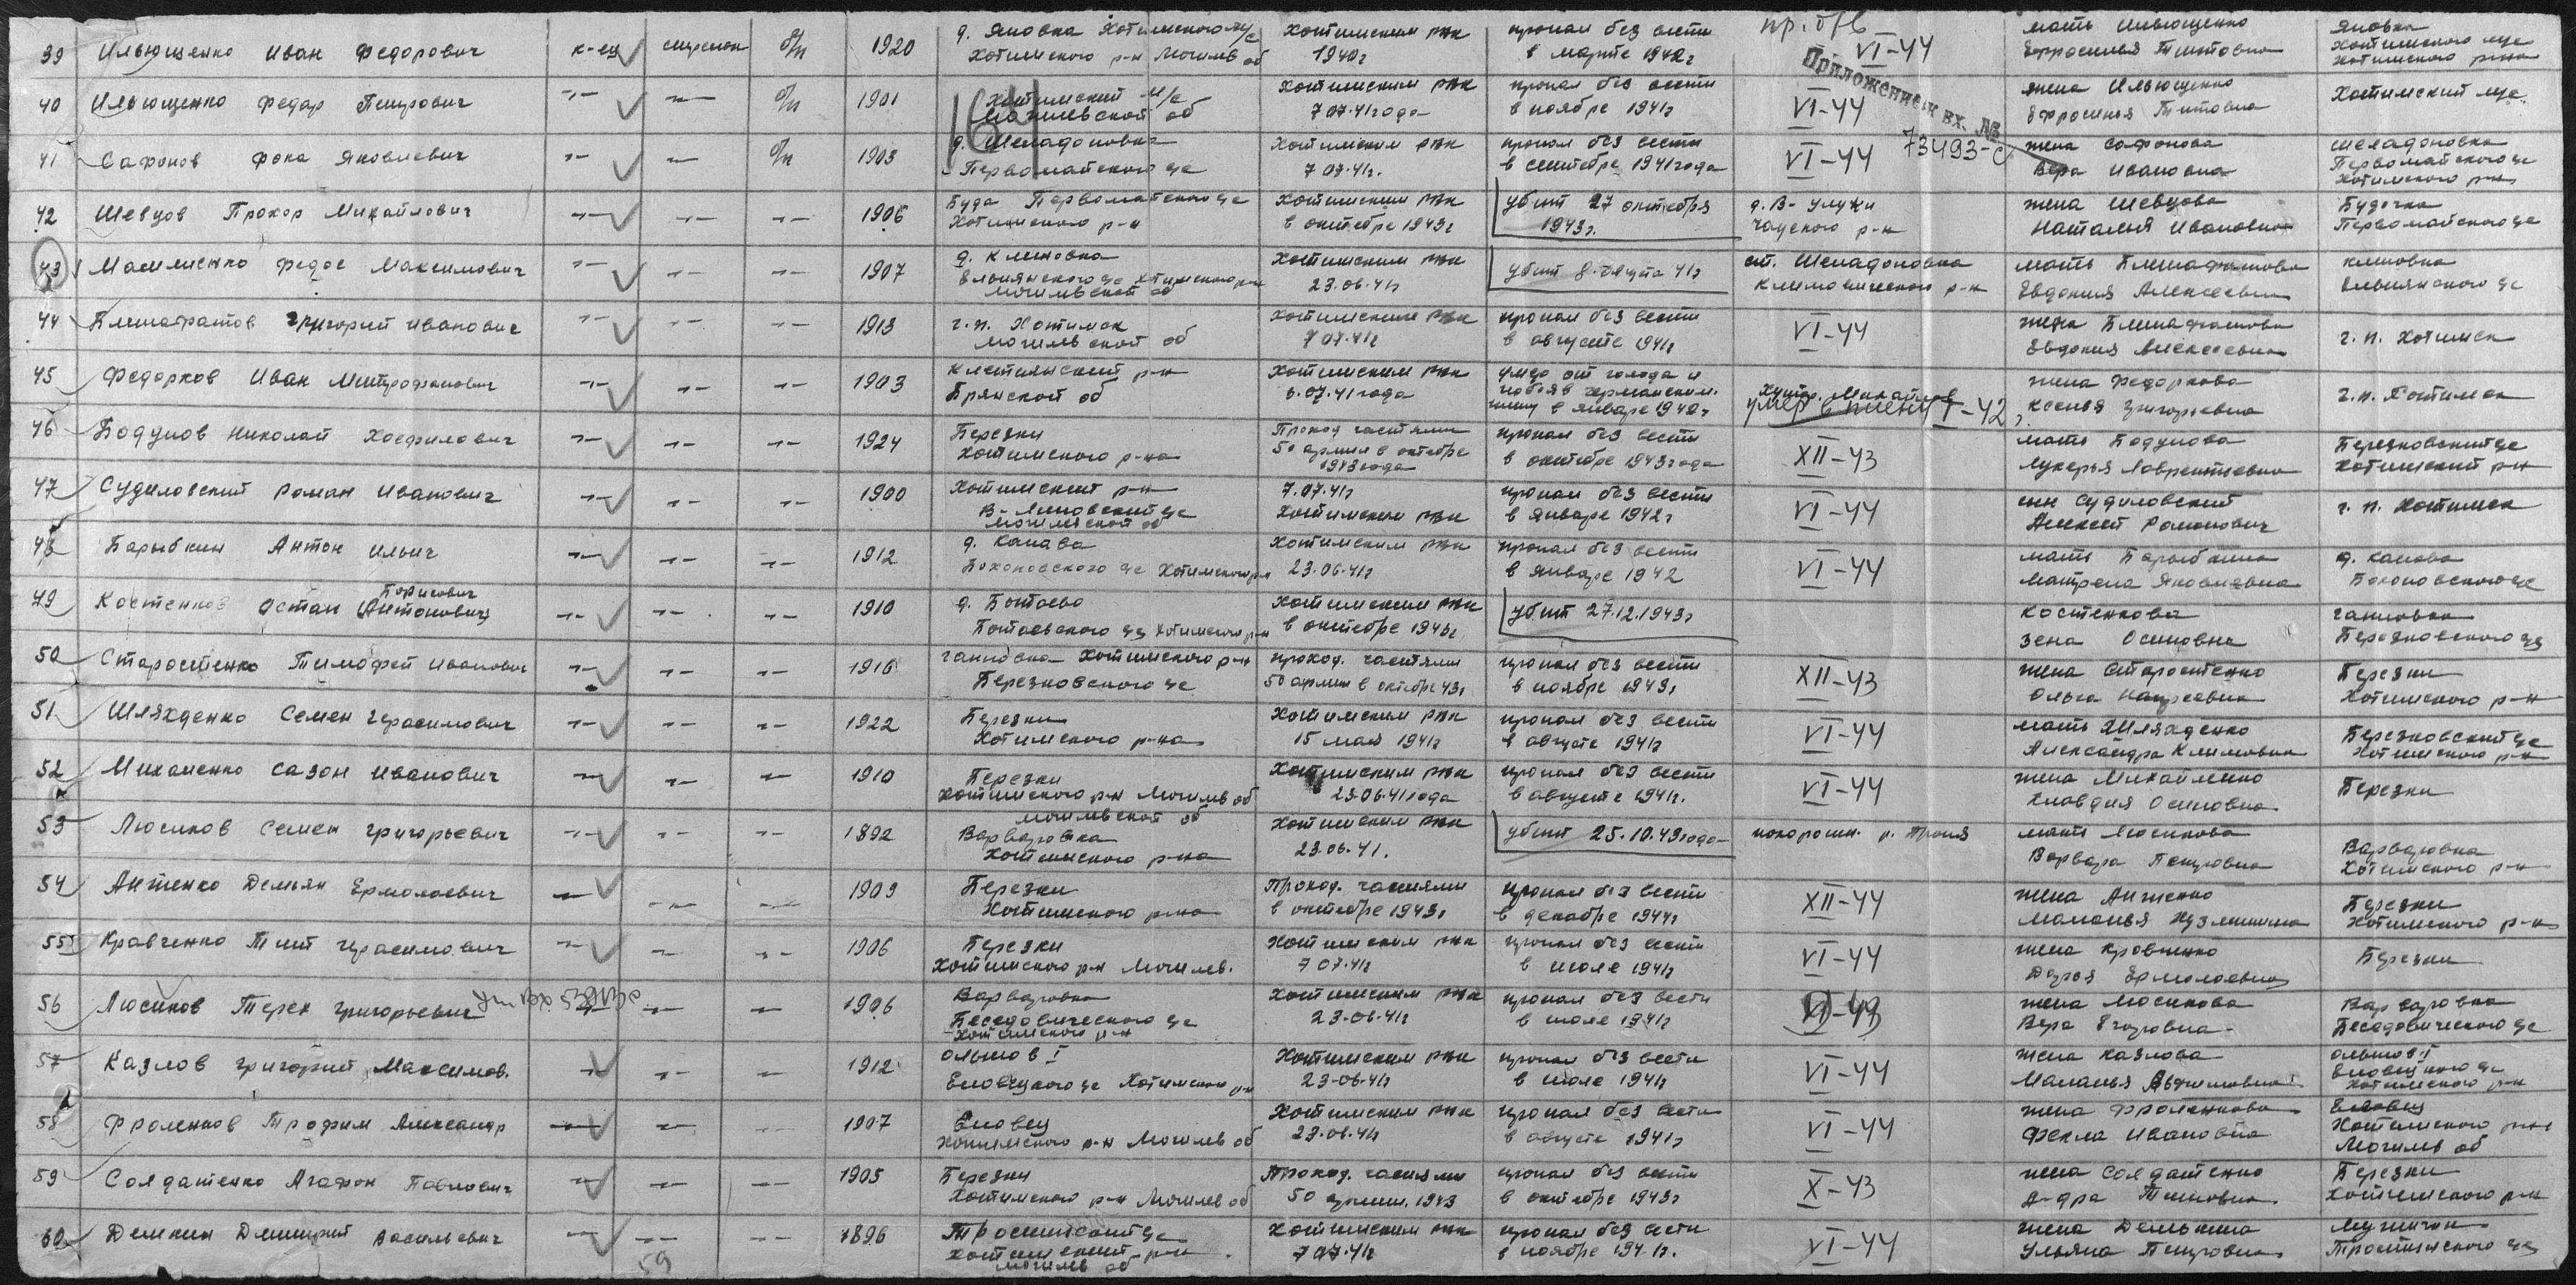 39 Ильющенко Иван Федорович к-ец стрелок б/п 1920 д. Яновка Хотимского м/с Хотимского р-н Могилев об Хотимским РВК 1940г пропал без вести в марте 1942г пр. б/в VI-44 мать Ильющенко Ефросинья Титовна Яновка Хотимского м/с Хотимского р-на
Приложение к вх. №
73493-с
40 Ильющенко Федор Петрович -"- -"- б/п 1901 Хотимский м/с Могилевской об Хотимским РВК 7 07.41 года пропал без вести в ноябре 1941г VI-44 жена Ильющенко Ефросинья Титовна Хотимский м/с
164
41 Сафонов Фока Яковлевич -"- -"- б/п 1903 д. Шеладоновка Первомайского с/с Хотимским РВК 7 07.41г. пропал без вести в сентябре 1941 года VI-44 жена Сафонова Вера Ивановна Шеладоновка Первомайского с/с Хотимского р-н
42 Шевцов Прохор Михайлович -"- -"- -"- 1906 Буда Первомайского с/с Хотимского р-н Хотимским РВК в октябре 1943г убит 27 октября 1943г. д. В-Улуки Чауского р-н жена Шевцова Наталья Ивановна Будочка Первомайского с/с
43 Федос Максимович -"- -"- -"- 1907 д. Клиновка Ельнянского с/с Хотимского р-н Могилевской об Хотимским РВК 23.06.41г убит 8 августа 41г ст. Шеладоновка Климовичского р-н мать Евдокия Алексеевна Клиновка Ельнянского с/с
44 Григорий Иванович -"- -"- -"- 1913 г.п. Хотимск Могилевской об Хотимским РВК 7 07.41г пропал без вести в августе 1941г VI-44 жена Евдокия Алексеевна г.п. Хотимск
45 Федорков Иван Митрофанович -"- -"- -"- 1903 р-н Брянской об Хотимским РВК 6.07.41 года умер от голода и побоя в германском плену в январе 1942г хутор. Михайлов умер в плену I-42 жена Федоркова Ксения Григорьевна г.п. Хотимск
46 Бодунов Николай -"- -"- -"- 1924 Березки Хотимского р-на Проход частями 50 армии в октябре 1943 года пропал без вести в октябре 1943 года XII-43 мать Бодунова Лукерья Лаврентьевна Березковский с/с Хотимский р-н
47 Судиловский Роман Иванович -"- -"- -"- 1900 Хотимский р-н В-Липовский с/с Могилевской об 7.07.41г Хотимским РВК пропал без вести в январе 1942г VI-44 сын Судиловский Алексей Романович г.п. Хотимск
48 Барыбкин Антон Ильич -"- -"- -"- 1912 д. Канава Боханового с/с Хотимского р-н Хотимским РВК 23.06.41г пропал без вести в январе 1942 VI-44 мать Барыбкина Матрена Яковлевна д. Канава
49 Костенков Остап Борисович (Антонович) -"- -"- -"- 1910 д. Ботаево Ботаевского с/с Хотимского р-н Хотимским РВК в октябре 1943г убит 27.12.1943г Костенкова Зена Осиповна Ганновка Березковского с/с
50 Старостенко Тимофей Иванович -"- -"- -"- 1916 Ганновка Хотимского р-н Березковского с/с проход. частями 50 армии в октябре 43г пропал без вести в ноябре 1943г XII-43 жена Старостенко Ольга Березки Хотимского р-н
51 Шляхденко Семен Герасимович -"- -"- -"- 1922 Березки Хотимского р-на Хотимским РВК 15 мая 1941г пропал без вести в августе 1941г VI-44 мать Шляхденко Александра Климовна Березковский с/с Хотимского р-н
52 Михаленко Сазон Иванович -"- -"- -"- 1910 Березки Хотимского р-н Могилев об Хотимским РВК 23.06.41 года пропал без вести в августе 1941г. VI-44 жена Михайленко Клавдия Осиповна Березки
53 Люсиков Семен Григорьевич -"- -"- -"- 1892 Могилевской об Варваровка Хотимского р-на Хотимским РВК 23.06.41. убит 25.10.43 года похоронен. р. Проня мать Люсикова Варвара Петровна Варваровка Хотимского р-н
54 Антенко Демьян Ермолаевич -"- -"- -"- 1909 Березки Хотимского р-на Проход. частями в октябре 1943г пропал без вести в декабре 1944г XII-44 жена Антенко Маланья Кузьминична Березки Хотимского р-н
55 Кравченко Тит Герасимович -"- -"- -"- 1906 Березки Хотимского р-н Могилев. Хотимским РВК 7 07.41г пропал без вести в июле 1941г VI-44 жена Кравченко Дарья Ермолаевна Березки
56 Люсиков Терех Григорьевич -"- -"- -"- 1906 Варваровка Беседовического с/с Хотимского р-н Хотимским РВК 23.06.41г пропал без вести в июле 1941г жена Люсикова Вера Егоровна Варваровка Беседовического с/с
57 Казлов Григорий Максимов. -"- -"- -"- 1912 Ольшов I Еловецкого с/с Хотимского р-н Хотимским РВК 23.06.41г пропал без вести в июле 1941г VI-44 жена Казлова Маланья Ольшов I Еловецкого с/с Хотимского р-н
58 Фроленков Трофим Александр -"- -"- -"- 1907 Еловец Хотимского р-н Могилев об Хотимским РВК 23.06.41г пропал без вести в августе 1941г VI-44 жена Фроленкова Фекла Ивановна Еловец Хотимского р-н Могилев об
59 Солдатенко Агафон Павлович -"- -"- -"- 1905 Березки Хотимского р-н Могилев об Проход. частями 50 армии. 1943 пропал без вести в октябре 1943г X-43 жена Солдатенко А-дра Титовна Березки Хотимского р-н
60 Демкин Дмитрий Васильевич -"- -"- -"- 1896 Тростинский с/с Хотимский р-н Могилев об Хотимским РВК 7 07.41г пропал без вести в ноябре 1941г. VI-44 жена Демькина Ульяна Петровна Мужичок Тростинского с/с
59